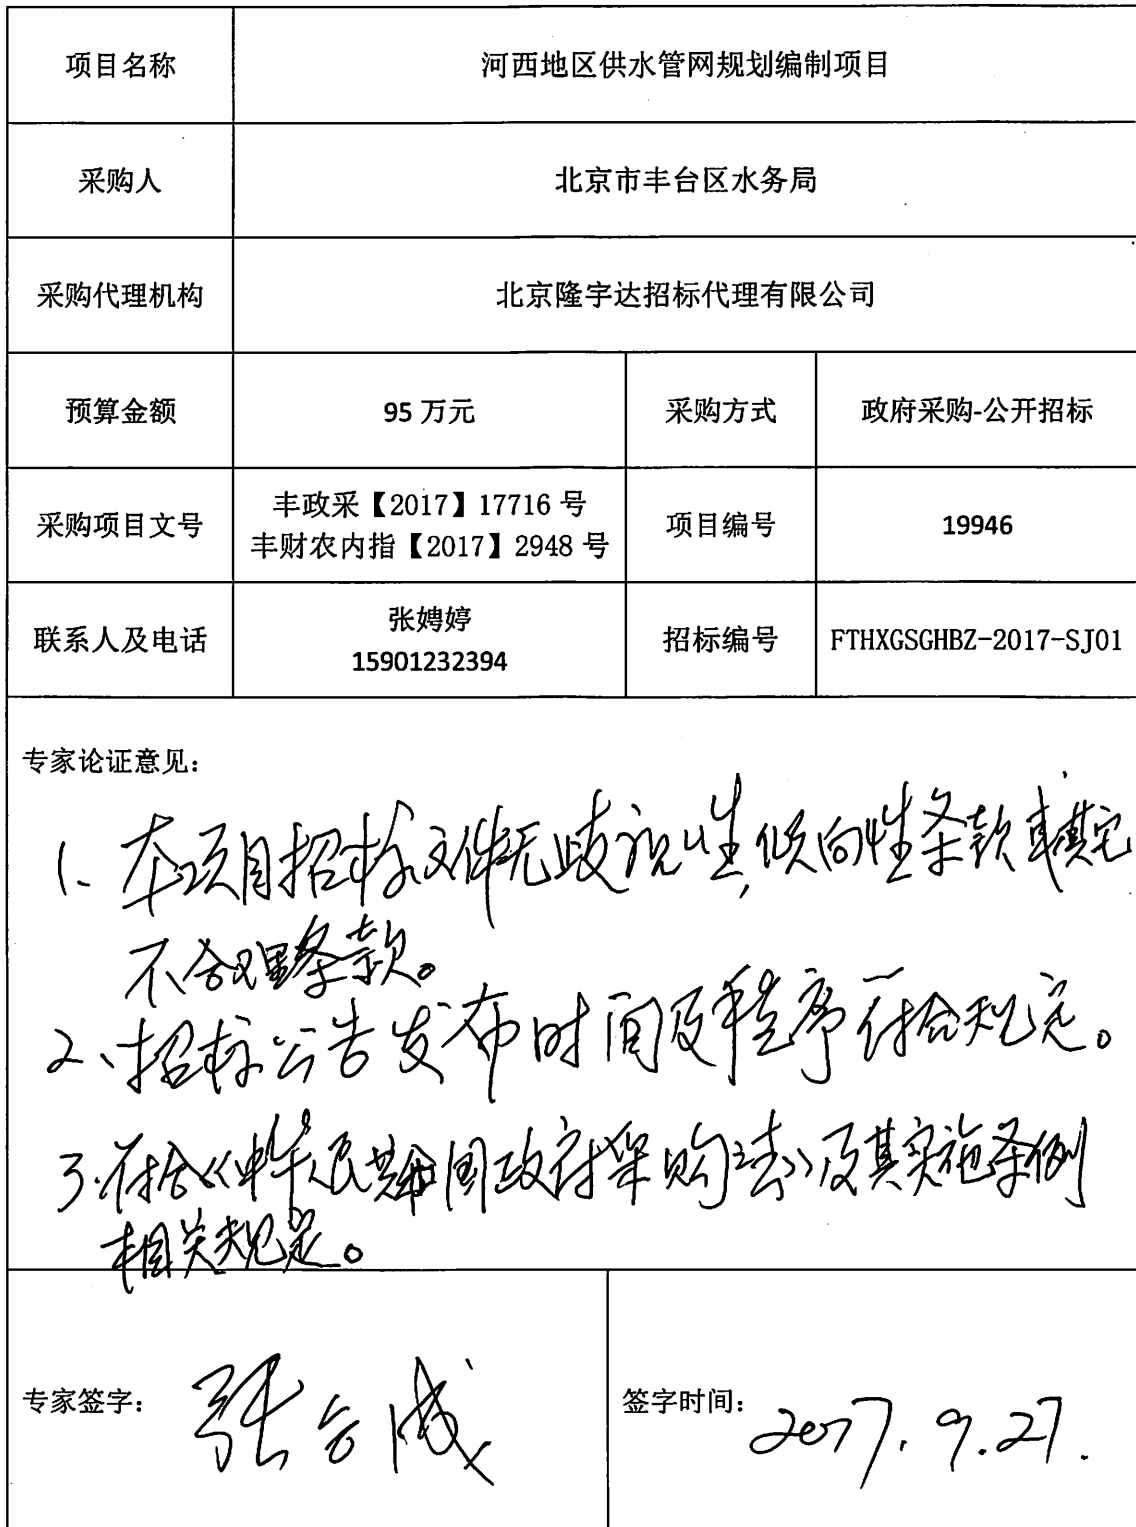 项目名称 河西地区供水管网规划编制项目
采购人 北京市丰台区水务局
采购代理机构 北京隆宇达招标代理有限公司
预算金额 95 万元 采购方式 政府采购-公开招标
采购项目文号 丰政采【2017】17716 号
丰财农内指【2017】2948 号 项目编号 19946
联系人及电话 张娉婷
15901232394 招标编号 FTHXGSGHBZ-2017-SJ01
专家论证意见：
1、本项目招标文件无歧视性,倾向性条款或其它
不合理条款。
2、招标公告发布时间及程序符合规定。
3、符合《中华人民共和国政府采购法》及其实施条例
相关规定。
专家签字： 签字时间：2017.9.27.